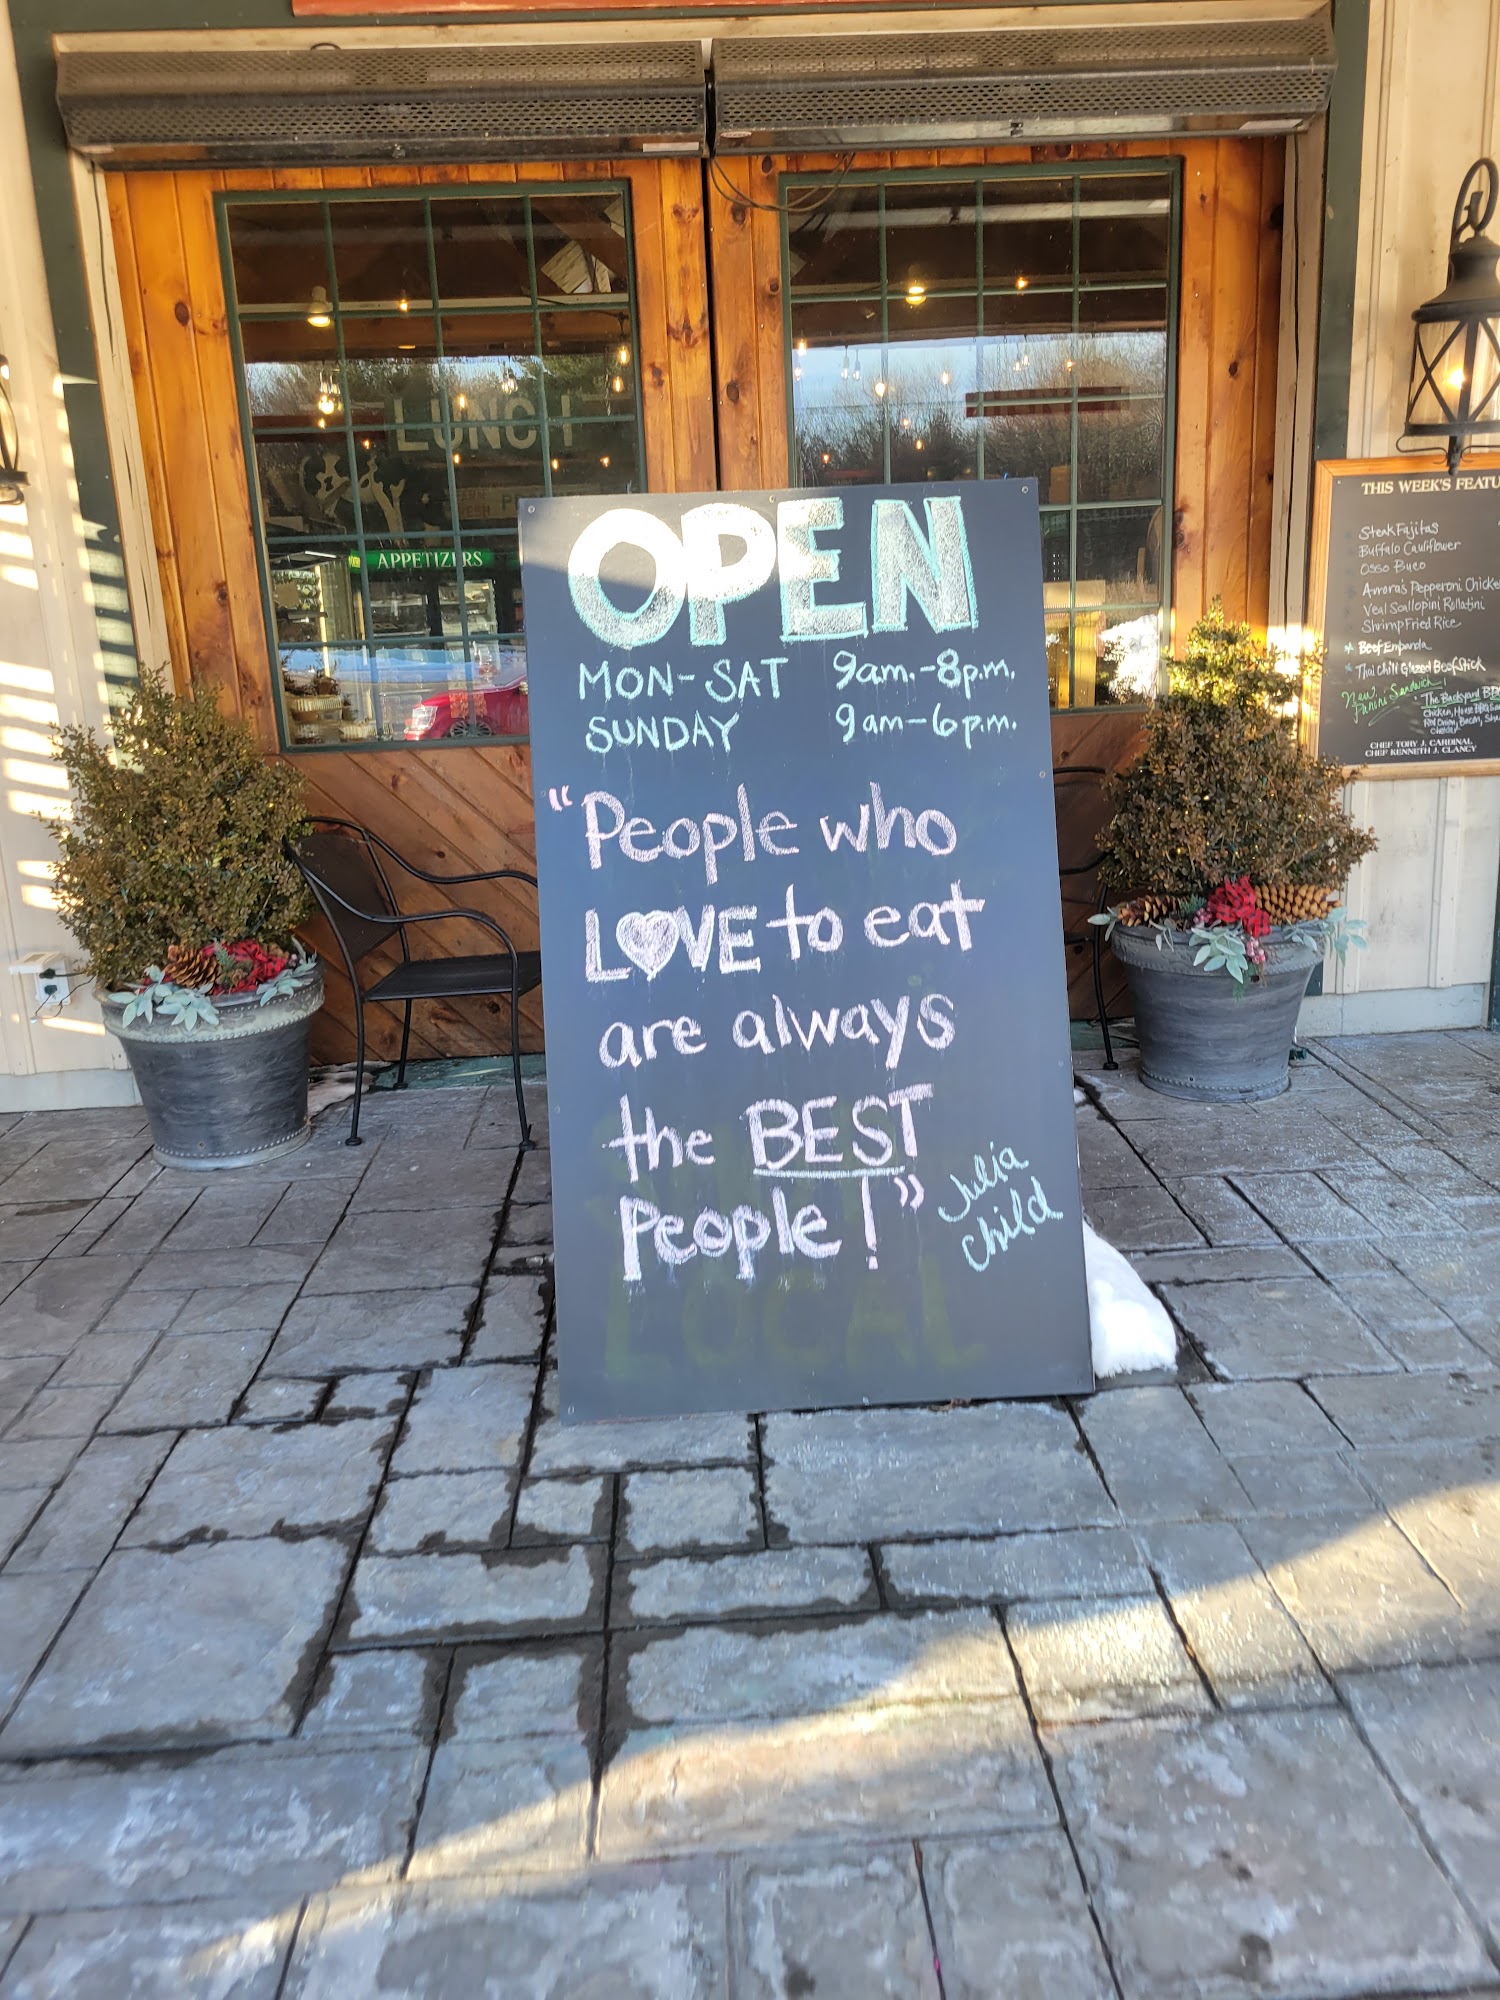 LUNCH
APPETIZERS
OPEN
MON-SAT 9am.-8p.m.
SUNDAY 9am-6p.m.
"People who
LOVE to eat
are always
the BEST
People!"
Julia
Child
LOCAL
THIS WEEK'S FEATU
Steak Fajitas
Buffalo Cauliflower
Osso Buco
Aurora's Pepperoni Chicke
Veal Scallopini Rollatini
Shrimp Fried Rice
* Beef Empanda
* Thai Chili Glazed Beef Stick
New Panini Sandwich!
The Backyard BB
Chicken, Honey BBQ Sau
Red Onion, Bacon,
Cheddar
CHEF TORY J. CARDINAL
CHEF KENNETH J. CLANCY